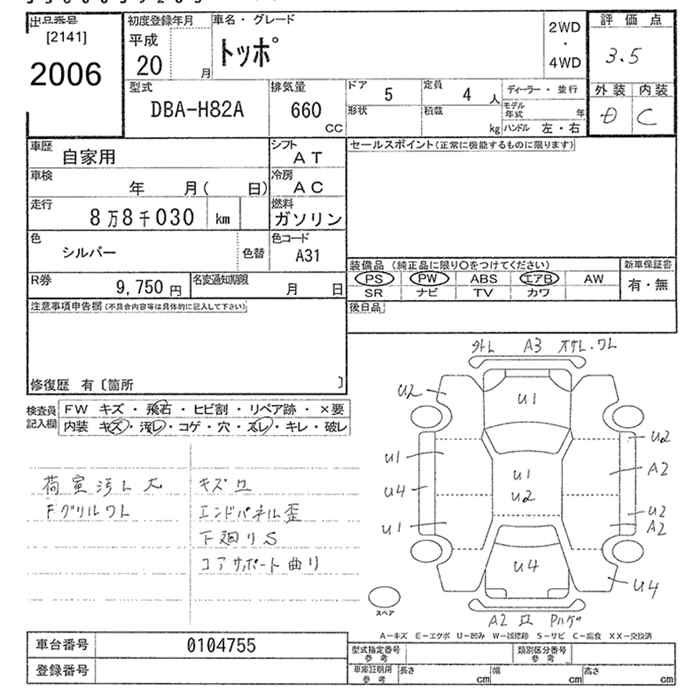 出品番号
[2141]
2006
初度登録年月
平成
20 月
車名・グレード
トッポ
2WD
・
4WD
評価点
3.5
外装 内装
D C
型式
DBA-H82A
排気量
660
CC
ドア 5
定員 4 人
形状
積載 kg
ディーラー・並行
モデル年式 年
ハンドル 左・右
車歴 自家用
シフト AT
車検 年 月( 日)
冷房 AC
走行 8万8千030 km
燃料 ガソリン
色 シルバー 色替
色コード A31
R券 9,750円
名変通知期限 月 日
セールスポイント(正常に機能するものに限ります)
装備品 (純正品に限り○をつけてください)
新車保証書
PS PW ABS エアB AW
有・無
SR ナビ TV カワ
後日品
注意事項申告欄(不具合内容等は具体的に記入して下さい)
修復歴 有〔箇所 〕
検査員記入欄
FW キズ・飛石・ヒビ割・リペア跡・×要
内装 キズ・汚レ・コゲ・穴・ズレ・キレ・破レ
荷室汚レ大
Fグリルワレ
キズ凹
エンドパネル歪
下廻りS
コアサポート曲り
外レ A3 スサレ・ワレ
U2
U1
U1
U4
U1
U1
U2
U2
A2
U2
A2
U4
U4
A2 凹 Pハゲ
スペア
A-キズ E-エクボ U-凹み W-板修跡 S-サビ C-腐食 XX-交換済
車台番号 0104755
登録番号
型式指定番号 参考
類別区分番号 参考
車庫証明用 参考
長さ cm
幅 cm
高さ cm